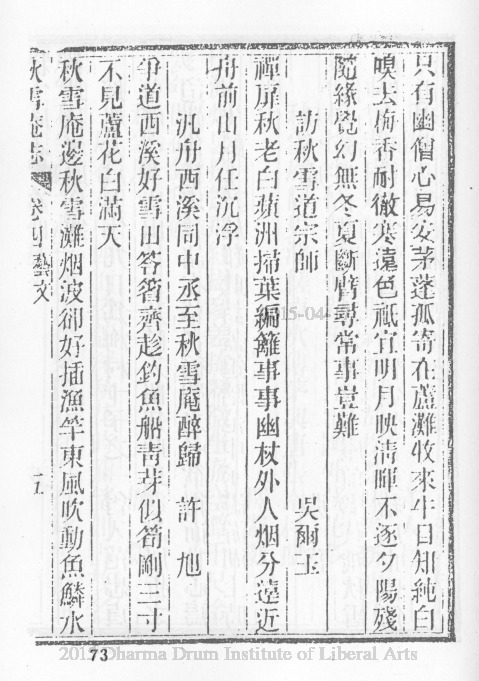 只有幽僧心易安茅蓬孤寄在蘆灘收來牛目知純白
嗅去梅香耐徹寒遠色祗宜明月映清暉不逐夕陽殘
隨緣覺幻無冬夏斷臂尋常事豈難
訪秋雪道宗師 吳爾玉
禪扉秋老白蘋洲掃葉編籬事事幽杖外人烟分遠近
舟前山月任沉浮
汎舟西溪同中丞至秋雪庵醉歸 許旭
爭道西溪好雪田笭箵齊趁釣魚船青芽似筍剛三寸
不見蘆花白滿天
秋雪庵邊秋雪灘烟波卻好插漁竿東風吹動魚鱗水
秋雪庵志 卷四 藝文
15-04-
73
2015 Dharma Drum Institute of Liberal Arts